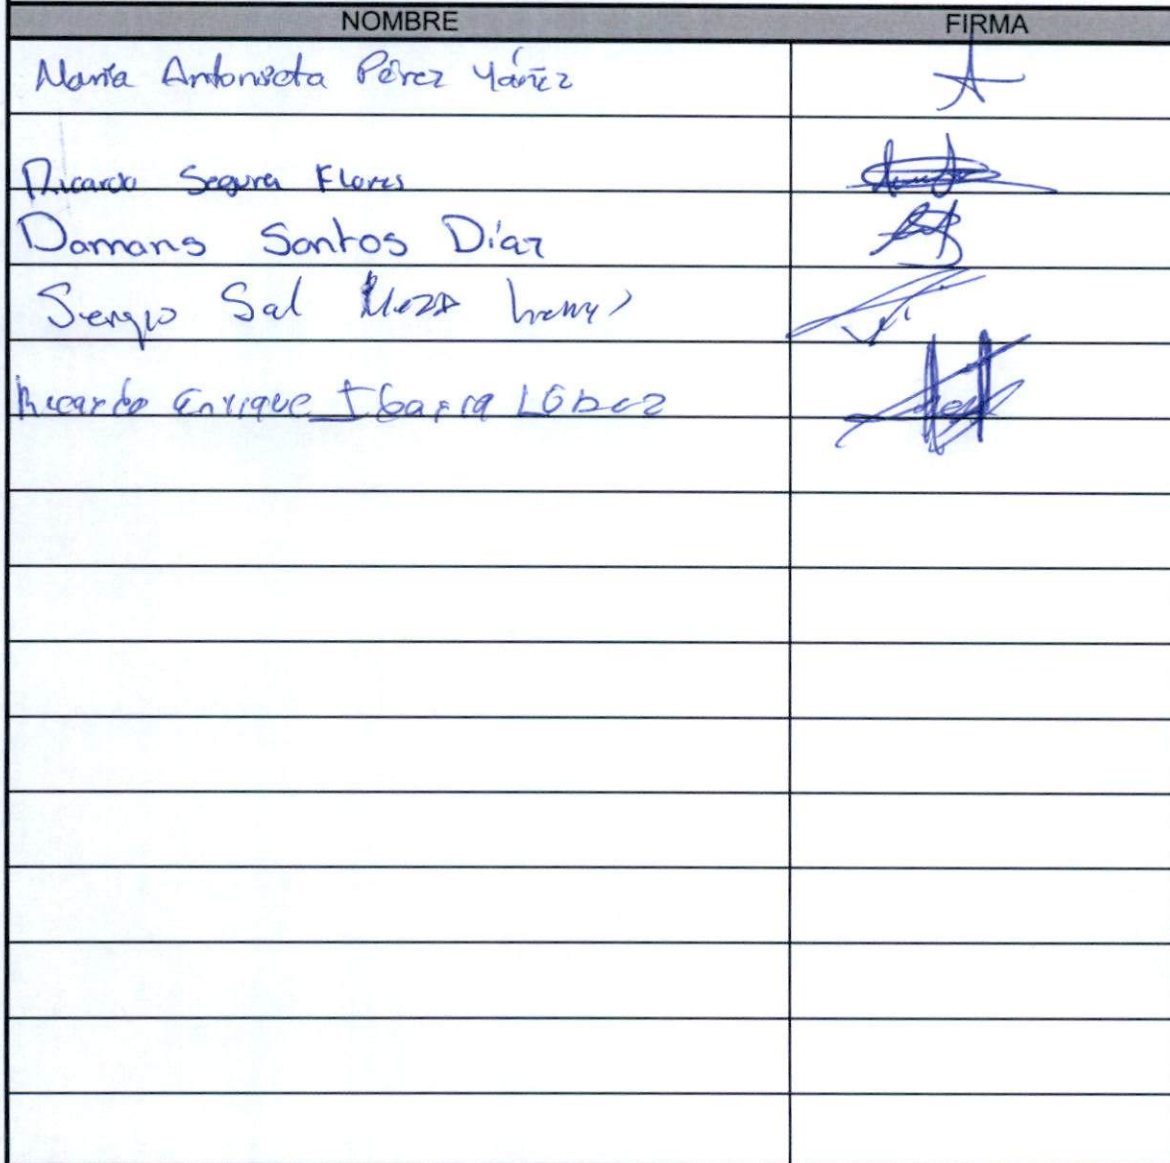 NOMBRE FIRMA
María Antonieta Pérez Yáñez
Ricardo Segura Flores
Damaris Santos Díaz
Sergio Sal Meza
Ricardo Enrique Ibarra López